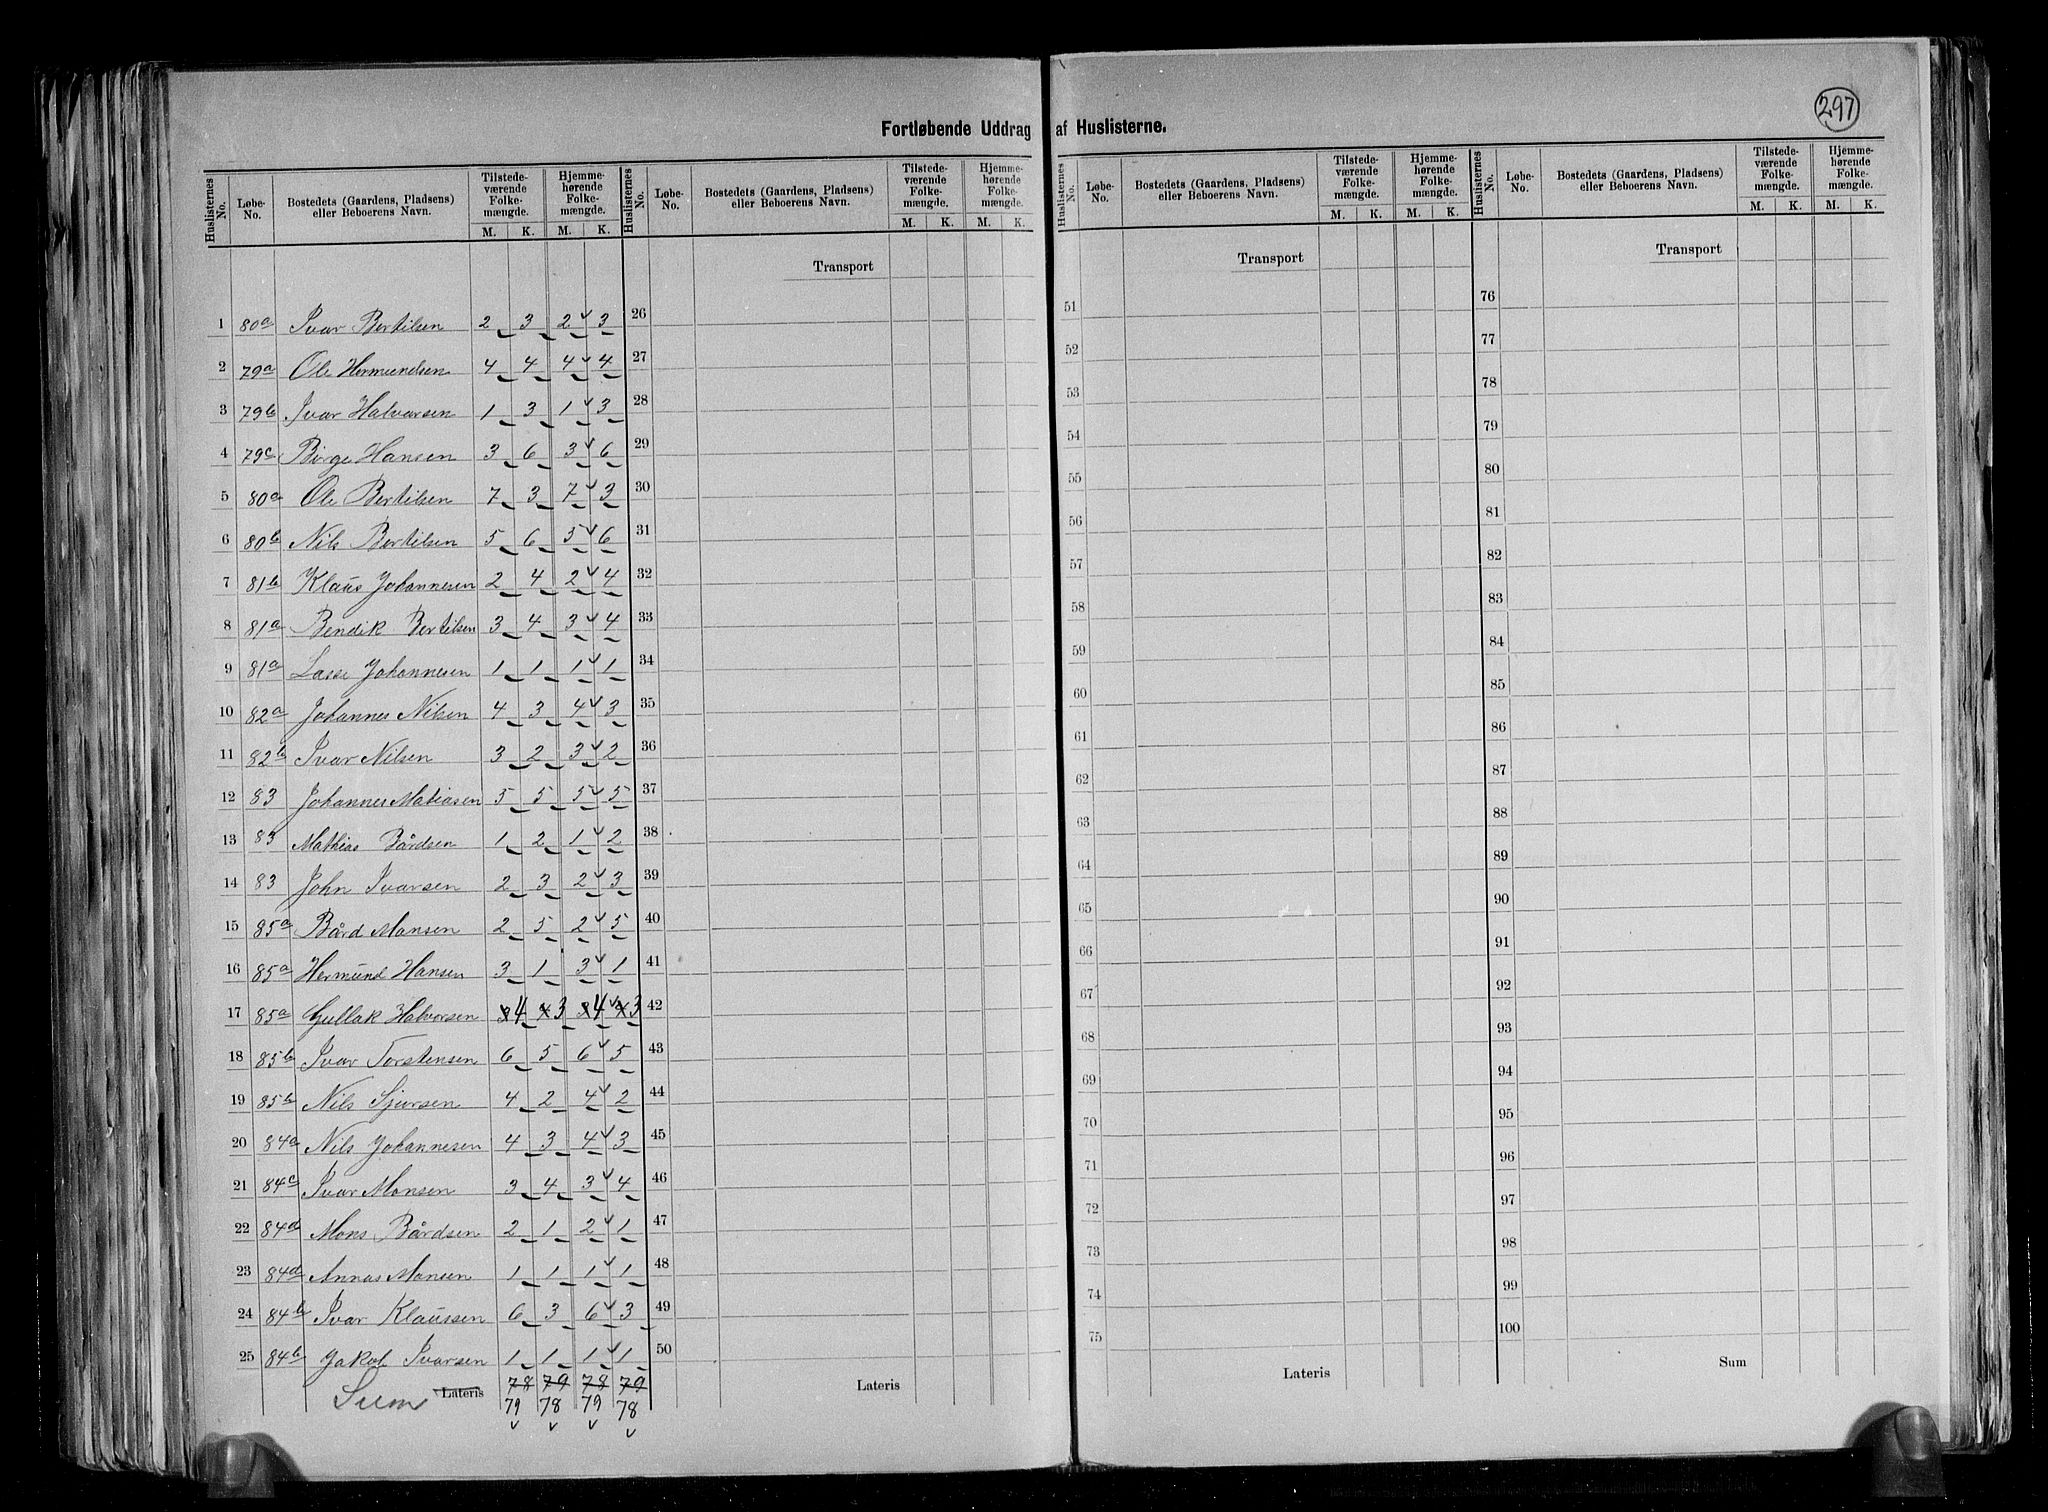 297
Fortløbende Uddrag af Huslisterne.
Huslisternes No. Løbe-No. Bostedets (Gaardens, Pladsens) eller Beboerens Navn. Tilstedeværende Folkemængde. M. K. Hjemmehørende Folkemængde. M. K.
Huslisternes No. Løbe-No. Bostedets (Gaardens, Pladsens) eller Beboerens Navn. Tilstedeværende Folkemængde. M. K. Hjemmehørende Folkemængde. M. K.
Huslisternes No. Løbe-No. Bostedets (Gaardens, Pladsens) eller Beboerens Navn. Tilstedeværende Folkemængde. M. K. Hjemmehørende Folkemængde. M. K.
Huslisternes No. Løbe-No. Bostedets (Gaardens, Pladsens) eller Beboerens Navn. Tilstedeværende Folkemængde. M. K. Hjemmehørende Folkemængde. M. K.
1 80a Ivar Bertilsen 2 3 2 3
2 79a Ole Hermundsen 4 4 4 4
3 79b Ivar Halvorsen 1 3 1 3
4 79c Børge Hansen 3 6 3 6
5 80a Ole Bertilsen 7 3 7 3
6 80b Nils Bertilsen 5 6 5 6
7 81b Klaus Johannesen 2 4 2 4
8 81a Bendik Bertilsen 3 4 3 4
9 81a Lasse Johannesen 1 1 1 1
10 82a Johannes Nilsen 4 3 4 3
11 82b Ivar Nilsen 3 2 3 2
12 83 Johannes Matiasen 5 5 5 5
13 83 Mathias Bårdsen 1 2 1 2
14 83 John Ivarsen 2 3 2 3
15 85a Bård Monsen 2 5 2 5
16 85a Hermund Hansen 3 1 3 1
17 85a Gullak Halvorsen 3 4 4 3 3 4 4 3
18 85b Ivar Torstensen 6 5 6 5
19 85b Nils Sjursen 4 2 4 2
20 84a Nils Johannesen 4 3 4 3
21 84c Ivar Monsen 3 4 3 4
22 84d Mons Bårdsen 2 1 2 1
23 84d Annas Monsen 1 1 1 1
24 84b Ivar Klaussen 6 3 6 3
25 84b Jakob Ivarsen 1 1 1 1
Sum Lateris 78 79 78 79
79 78 79 78
Transport
26
27
28
29
30
31
32
33
34
35
36
37
38
39
40
41
42
43
44
45
46
47
48
49
50
Lateris
Transport
51
52
53
54
55
56
57
58
59
60
61
62
63
64
65
66
67
68
69
70
71
72
73
74
75
Lateris
Transport
76
77
78
79
80
81
82
83
84
85
86
87
88
89
90
91
92
93
94
95
96
97
98
99
100
Sum